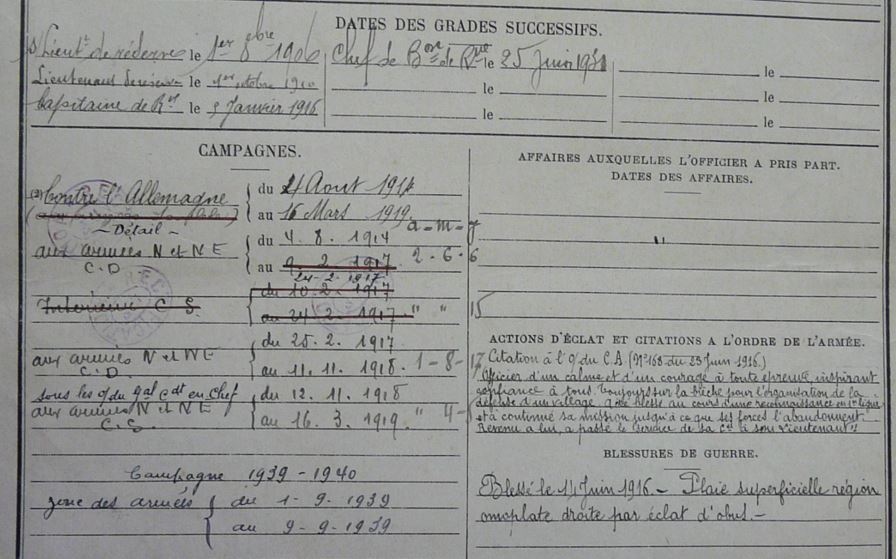 DATES DES GRADES SUCCESSIFS.
Lieut. de réserve le 1er 8bre 1906 Chef de Bon de Rve le 25 Juin 1931 le
Lieutenant de réserve le 1er octobre 1910 le le
Capitaine de Rve le 5 Janvier 1916 le le
CAMPAGNES.
(2) Contre l'Allemagne du 4 Aout 1914
au 16 Mars 1919.
~ Détail ~ a - m - j
aux armées N et NE du 4. 8. 1914
C. D au 9. 2. 1917 2 - 6 - 6
24-2-1917
du 10 2 1917
Intérieur C S. au 24 2 1917 " " 15
du 25. 2. 1917.
aux armées N et NE
C. D. au 11. 11. 1918. 1-8-17
sous les o/ du Gal Cdt en Chef du 12. 11. 1918
aux armées N et NE
C. S. au 16. 3. 1919. " 4-5
Campagne 1939 - 1940
zone des armées du 1-9-1939
au 9-9-1939
AFFAIRES AUXQUELLES L'OFFICIER A PRIS PART.
DATES DES AFFAIRES.
"
ACTIONS D'ÉCLAT ET CITATIONS A L'ORDRE DE L'ARMÉE.
Citation à l'o/ du C.A (N°168 du 23 Juin 1916.)
Officier d'un calme et d'un courage à toute épreuve, inspirant
confiance à tous. Toujours sur la brèche pour l'organisation de la
défense d'un village. a été blessé au cours d'une reconnaissance en 1re ligne
et à continué sa mission jusqu'à ce que ses forces l'abandonnent.
Revenu a lui, a passé le de sa Cie à son Lieutenant"
BLESSURES DE GUERRE.
Blessé le 14 Juin 1916. - Plaie superficielle région
omoplate droite par éclat d'obus. -